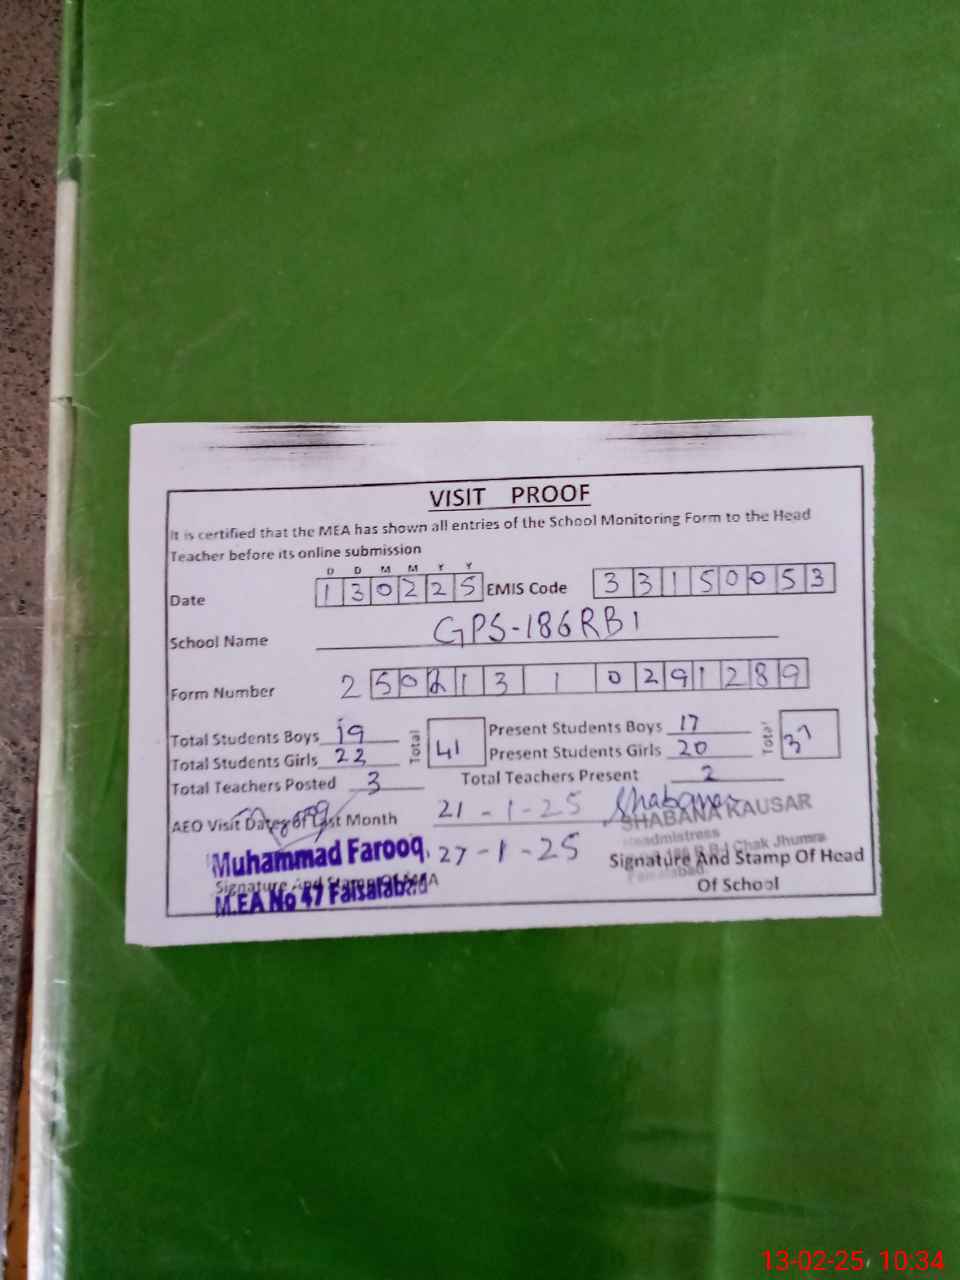 VISIT PROOF
It is certified that the MEA has shown all entries of the School Monitoring Form to the Head
Teacher before its online submission
D D M M Y Y
Date 1 3 0 2 2 5 EMIS Code 3 3 1 5 0 0 5 3
School Name GPS-186RB1
Form Number 2 5 0 2 1 3 1 0 2 9 1 2 8 9
Total Students Boys 19 Total 41 Present Students Boys 17 Total 37
Total Students Girls 22 Present Students Girls 20
Total Teachers Posted 3 Total Teachers Present 2
AEO Visit Dates of Last Month 21-1-25 Shabana
SHABANA KAUSAR
Headmistress
Muhammad Farooq 27-1-25 Chak Jhumra
Signature And Stamp Of MEA Signature And Stamp Of Head
M.EA No 47 Faisalabad Faisalabad
Of School
13-02-25 10:34